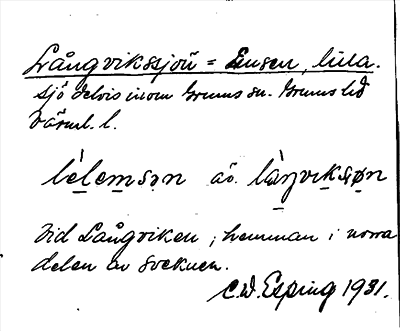 Långvikssjön = Emsen, lilla.
sjö delvis inom Grums sn. Grums hd
Värml. l.
lèlemsən äv. làŋviksøn
Vid Långviken, hemman i norra
delen av socknen.
C.W. Esping 1931.